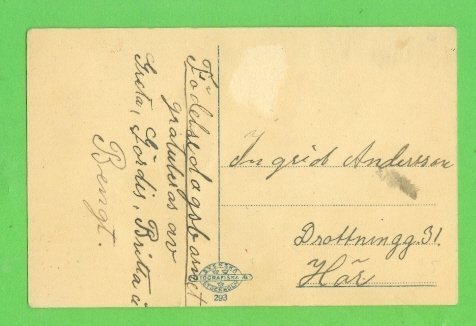 Födelsedagsbarnet
gratuleras av
Greta, Gördis, Britta o
Bengt.
Ingrid Andersson
Drottningg. 31.
Här
STOCKHOLM
293